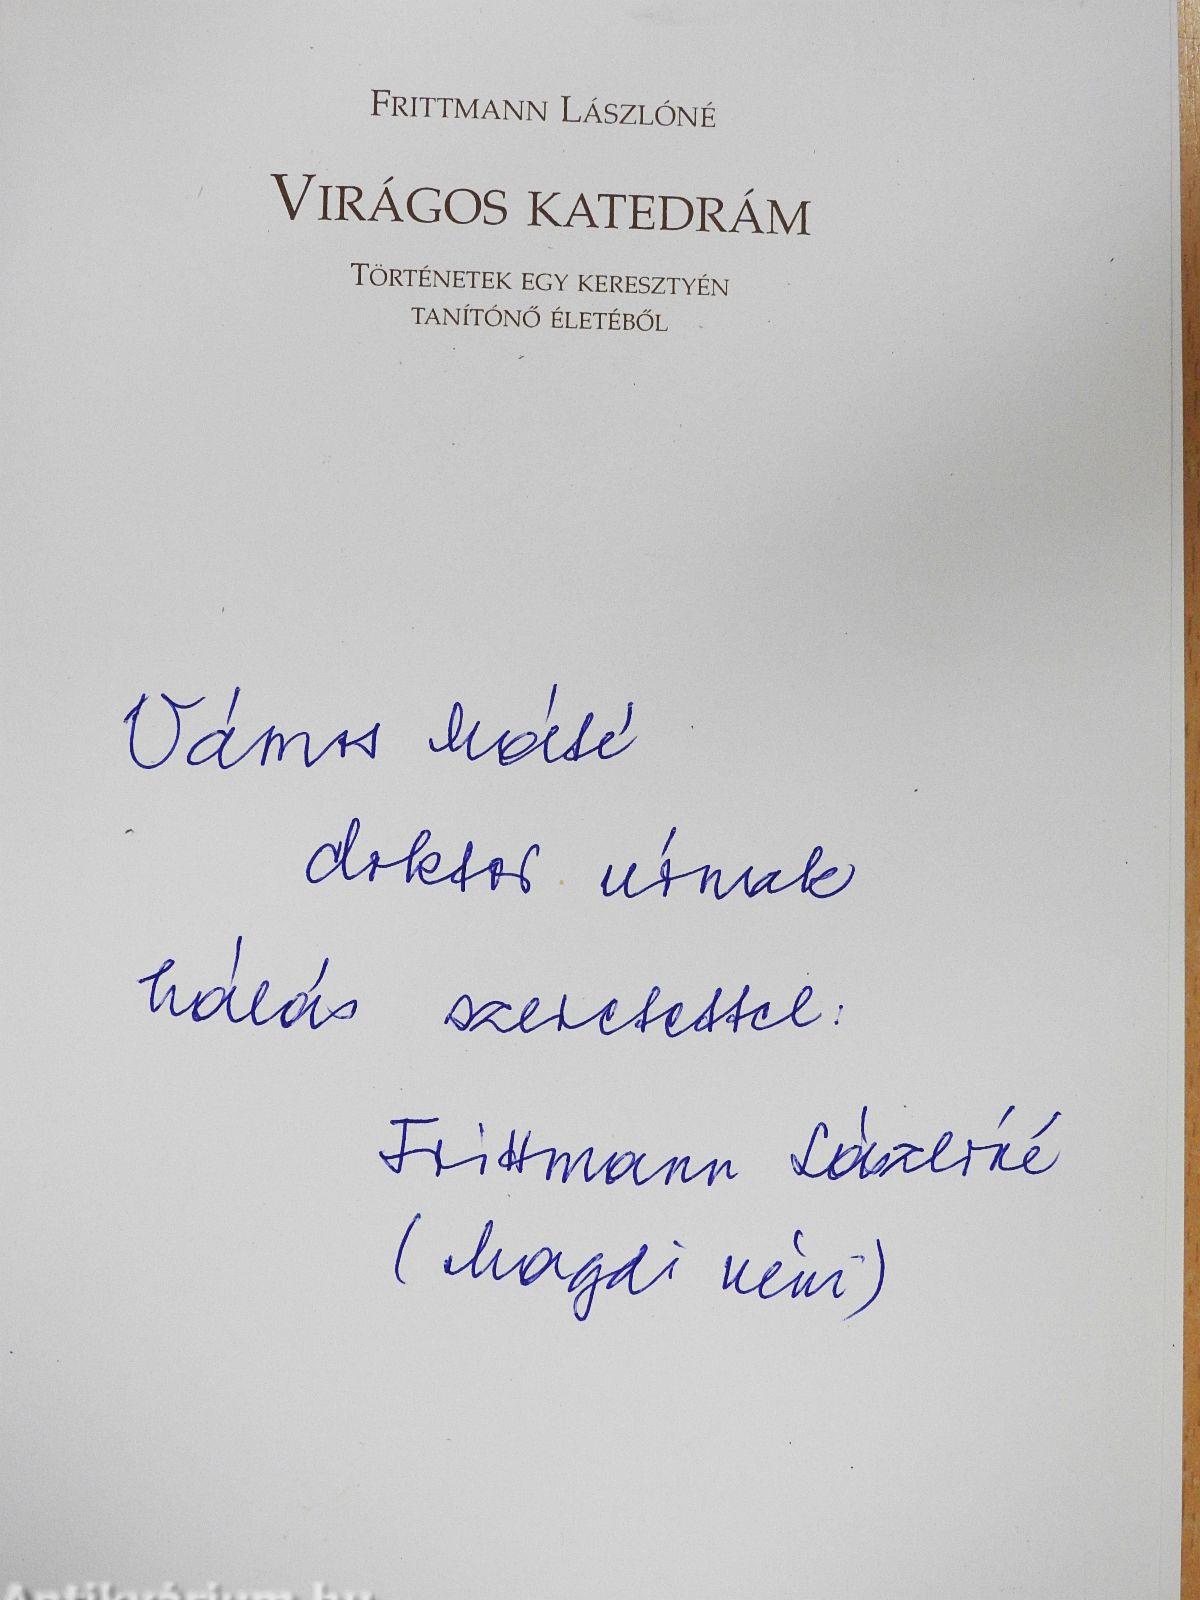 FRITTMANN LÁSZLÓNÉ
VIRÁGOS KATEDRÁM
TÖRTÉNETEK EGY KERESZTYÉN
TANÍTÓNŐ ÉLETÉBŐL
Vámos Máté
doktor úrnak
hálás szeretettel:
Frittmann Lászlóné
(Magdi néni)
Antikvárium.hu